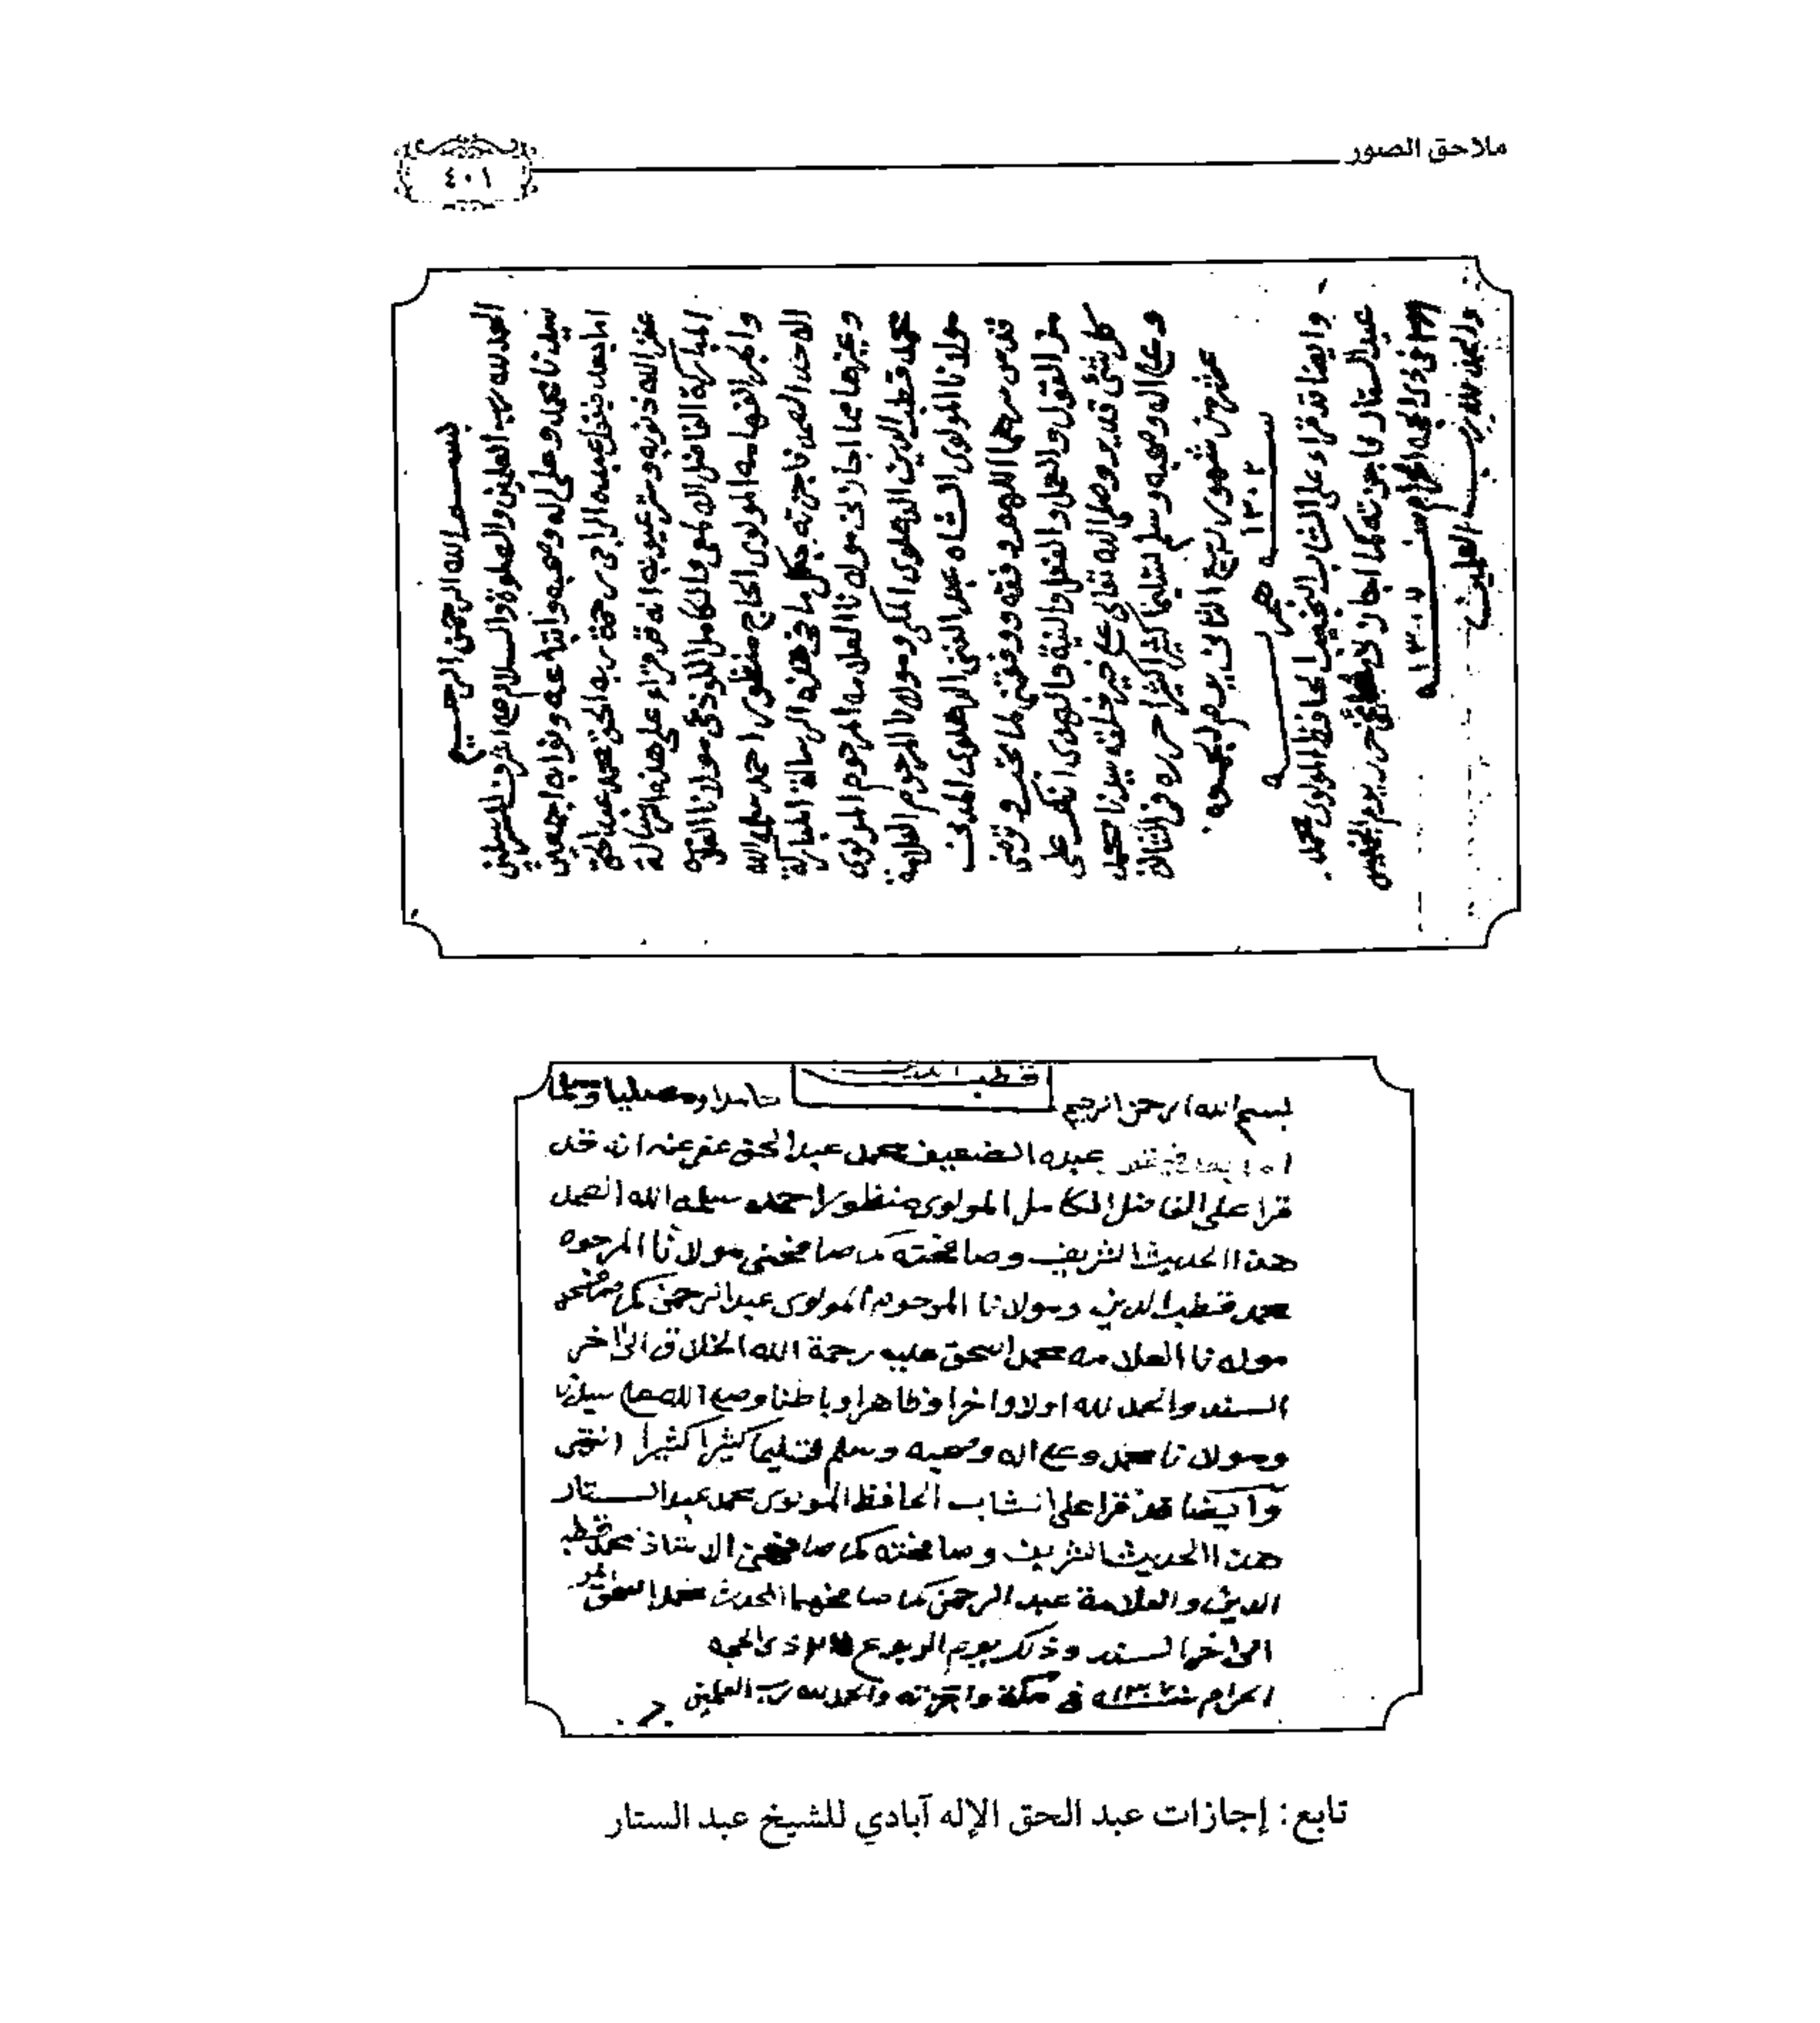 ملاحق الصور
٤٠١
بسم الله الرحمن الرحيم
الحمد لله رب العلمين والصلوة والسلام على اشرف المرسلين
سيدنا محمد وعلى اله وصحبه واتباعه ونوابه اجمعين
اما بعد فيقول عبده الراجي رحمة ربه الحق محمد عبد الحق
غفر الله ذنوبه وستر عيوبه انه قد قراء على هذه الرسالة
المباركة الفاضل الالمعي والكامل اللوذعي مولانا العلامة
والحبر الفهامه المولوى الحاج منظور احمد سلمه الله
الاحد الصمد فاجزته بكل ما في هذه الرسالة المباركة
وغيرها مما اجازني مولانا العلامه المرحوم المولوى
محمد قطب الدين الدهلوى المكي ومولانا المرحوم العلامة
مولانا المولوى الشاه عبد الغنى الدهلوى المدني
قدس سرهما اللهم وفقه ووفقني لما تحب وترضى
من القول والعمل والفعل والنية والهدى انك على
كل شئ قدير وصلى الله تعالى على خير خلقه سيدنا محمد
وعلى اله وصحبه وسلم تسليما كثيرا كثيرا حرره في الثالث
عشر من شهور ربيع الثاني يوم الجمعه
سنه ١٣٠٢ هجريه
وايضا قد قراء على الشاب النجيب الحافظ المولوى محمد
عبد الستار فاجزته كما اجازني حرر يوم الخميس
في ذى الحجه الحرام سنه ١٣٠٧
والحمد لله رب العلمين
قطب الدين
بسم الله الرحمن الرحيم حامدا ومصليا ومسلما
اما بعد فيقول عبده الضعيف محمد عبد الحق عفى عنه انه قد
قرا على الفاضل الكامل المولوى منظور احمد سلمه الله الصمد
هذا الحديث الشريف وصافحته كما صافحني مولانا المرحوم
محمد قطب الدين ومولانا المرحوم المولوى عبد الرحمن كما صافحهم
مولانا العلامه محمد اسحق عليه رحمة الله الخلاق الى اخر
السند والحمد لله اولا واخرا وظاهرا وباطنا وصلى الله على سيدنا
ومولانا محمد وعلى اله وصحبه وسلم تسليما كثيرا كثيرا انتهى
وايضا قد قرا على الشاب الحافظ المولوى محمد عبد الستار
هذا الحديث الشريف وصافحته كما صافحني الاستاذ محمد قطب
الدين والعلامة عبد الرحمن كما صافحهما المحدث محمد اسحق
الى اخر السند وذلك يوم الربوع ذى الحجه
الحرام في مكة واجزته والحمد لله رب العلمين
تابع: إجازات عبد الحق الإله آبادي للشيخ عبد الستار